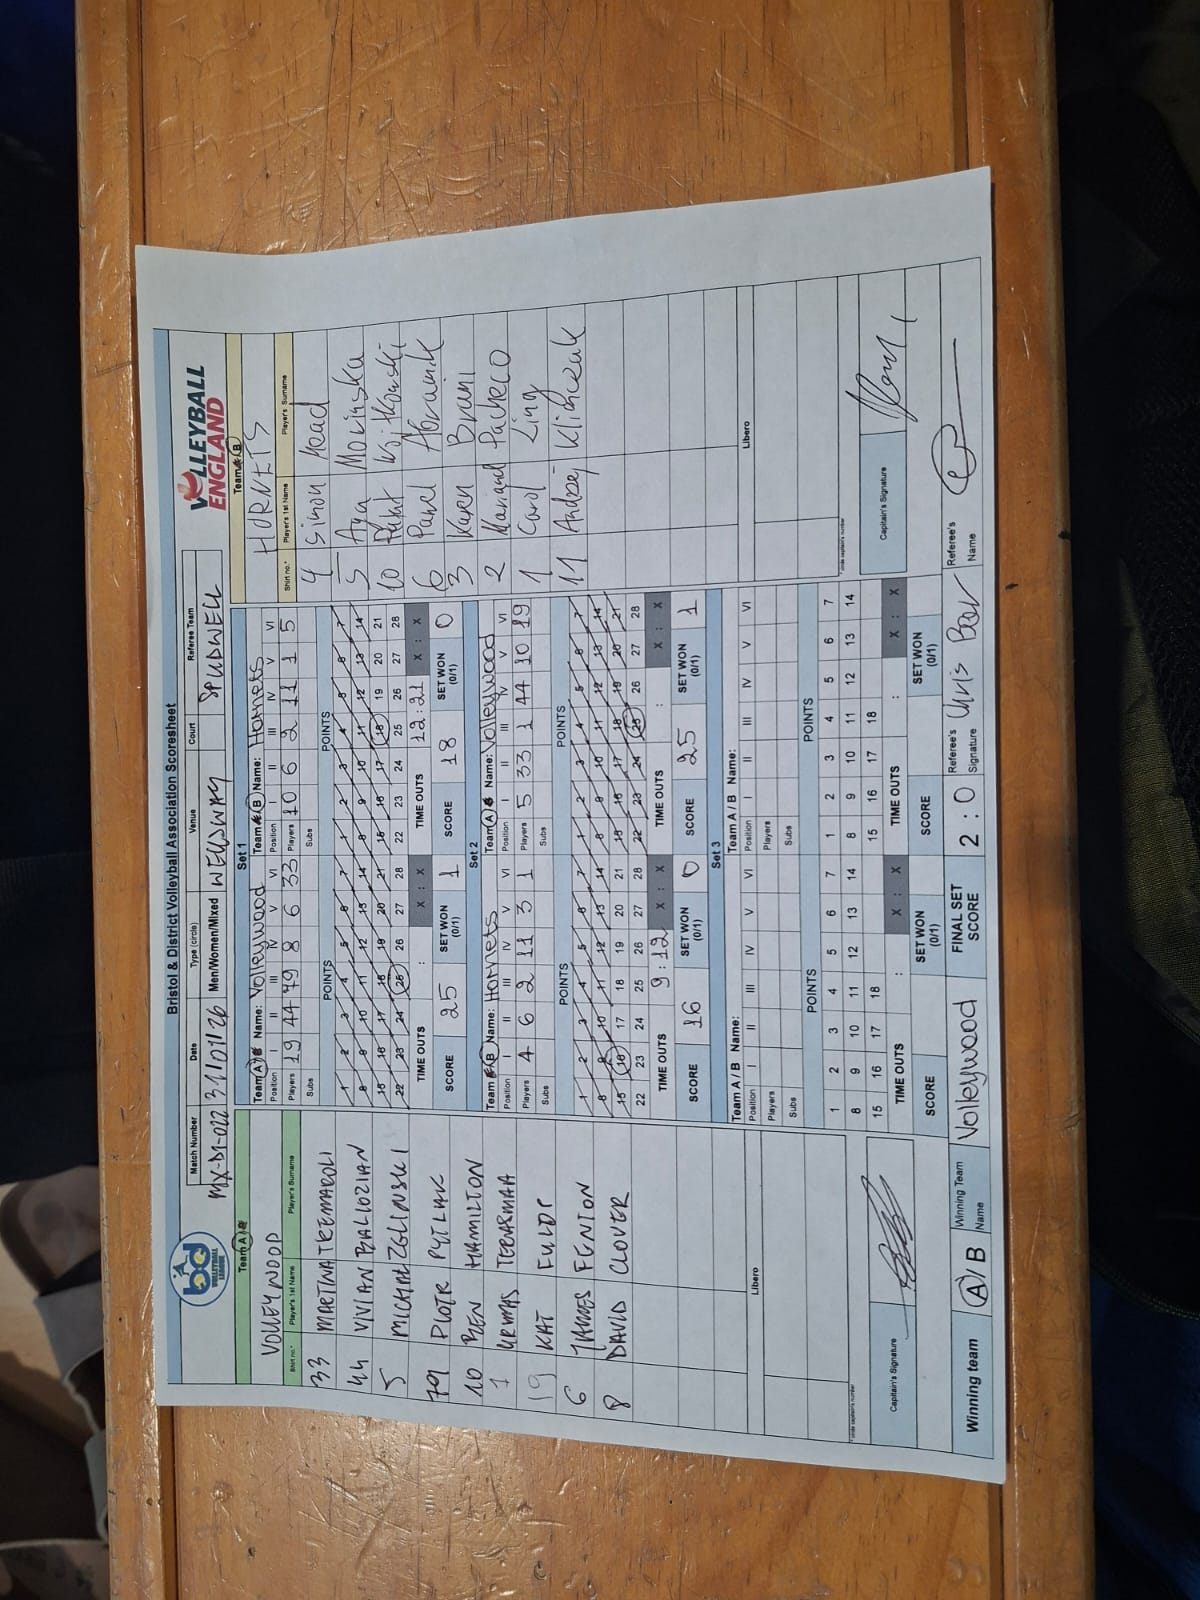 Bristol & District Volleyball Association Scoresheet
bd VOLLEYBALL LEAGUE
Match Number Date Type (circle) Venue Court Referee Team
MX-D1-022 31/01/26 Men/Women/Mixed WELLSWAY SPUDWELL
VOLLEYBALL ENGLAND
Team A/B
VOLLEYWOOD
Shirt no.* Player's 1st Name Player's Surname
33 MARTINA
44 VIVIAN
5 ZGLINSKI
79 PIOTR PYTLAK
10 BEN HAMILTON
1 URMAS
19 KAT
6 JAMES FENTON
8 DAVID CLOVER
Libero
* circle captain's number
Captain's Signature
Set 1
Team A/B Name: Volleywood
Position I II III IV V VI
Players 19 44 79 8 6 33
Subs
POINTS
1 2 3 4 5 6 7
8 9 10 11 12 13 14
15 16 17 18 19 20 21
22 23 24 25 26 27 28
TIME OUTS : X : X
SCORE 25 SET WON (0/1) 1
Team A/B Name: Hornets
Position I II III IV V VI
Players 10 6 2 11 1 5
Subs
POINTS
1 2 3 4 5 6 7
8 9 10 11 12 13 14
15 16 17 18 19 20 21
22 23 24 25 26 27 28
TIME OUTS 12:21 X : X
SCORE 18 SET WON (0/1) 0
Set 2
Team A/B Name: Hornets
Position I II III IV V VI
Players 4 6 2 11 3 1
Subs
POINTS
1 2 3 4 5 6 7
8 9 10 11 12 13 14
15 16 17 18 19 20 21
22 23 24 25 26 27 28
TIME OUTS 9:12 X : X
SCORE 16 SET WON (0/1) 0
Team A/B Name: Volleywood
Position I II III IV V VI
Players 5 33 1 44 10 19
Subs
POINTS
1 2 3 4 5 6 7
8 9 10 11 12 13 14
15 16 17 18 19 20 21
22 23 24 25 26 27 28
TIME OUTS : X : X
SCORE 25 SET WON (0/1) 1
Set 3
Team A / B Name:
Position I II III IV V VI
Players
Subs
POINTS
1 2 3 4 5 6 7
8 9 10 11 12 13 14
15 16 17 18
TIME OUTS : X : X
SCORE SET WON (0/1)
Team A / B Name:
Position I II III IV V VI
Players
Subs
POINTS
1 2 3 4 5 6 7
8 9 10 11 12 13 14
15 16 17 18
TIME OUTS : X : X
SCORE SET WON (0/1)
Team A/B
HORNETS
Shirt no.* Player's 1st Name Player's Surname
4 Simon Read
5 Aga
10 Wojtkowski
6 Pawel Abramik
3 Karen Braini
2 Pacheco
1 Carol Ling
11 Andrzej Klimczak
Libero
* circle captain's number
Captain's Signature
Winning team A/B Winning Team Name Volleywood FINAL SET SCORE 2 : 0 Referee's Signature Chris Referee's Name